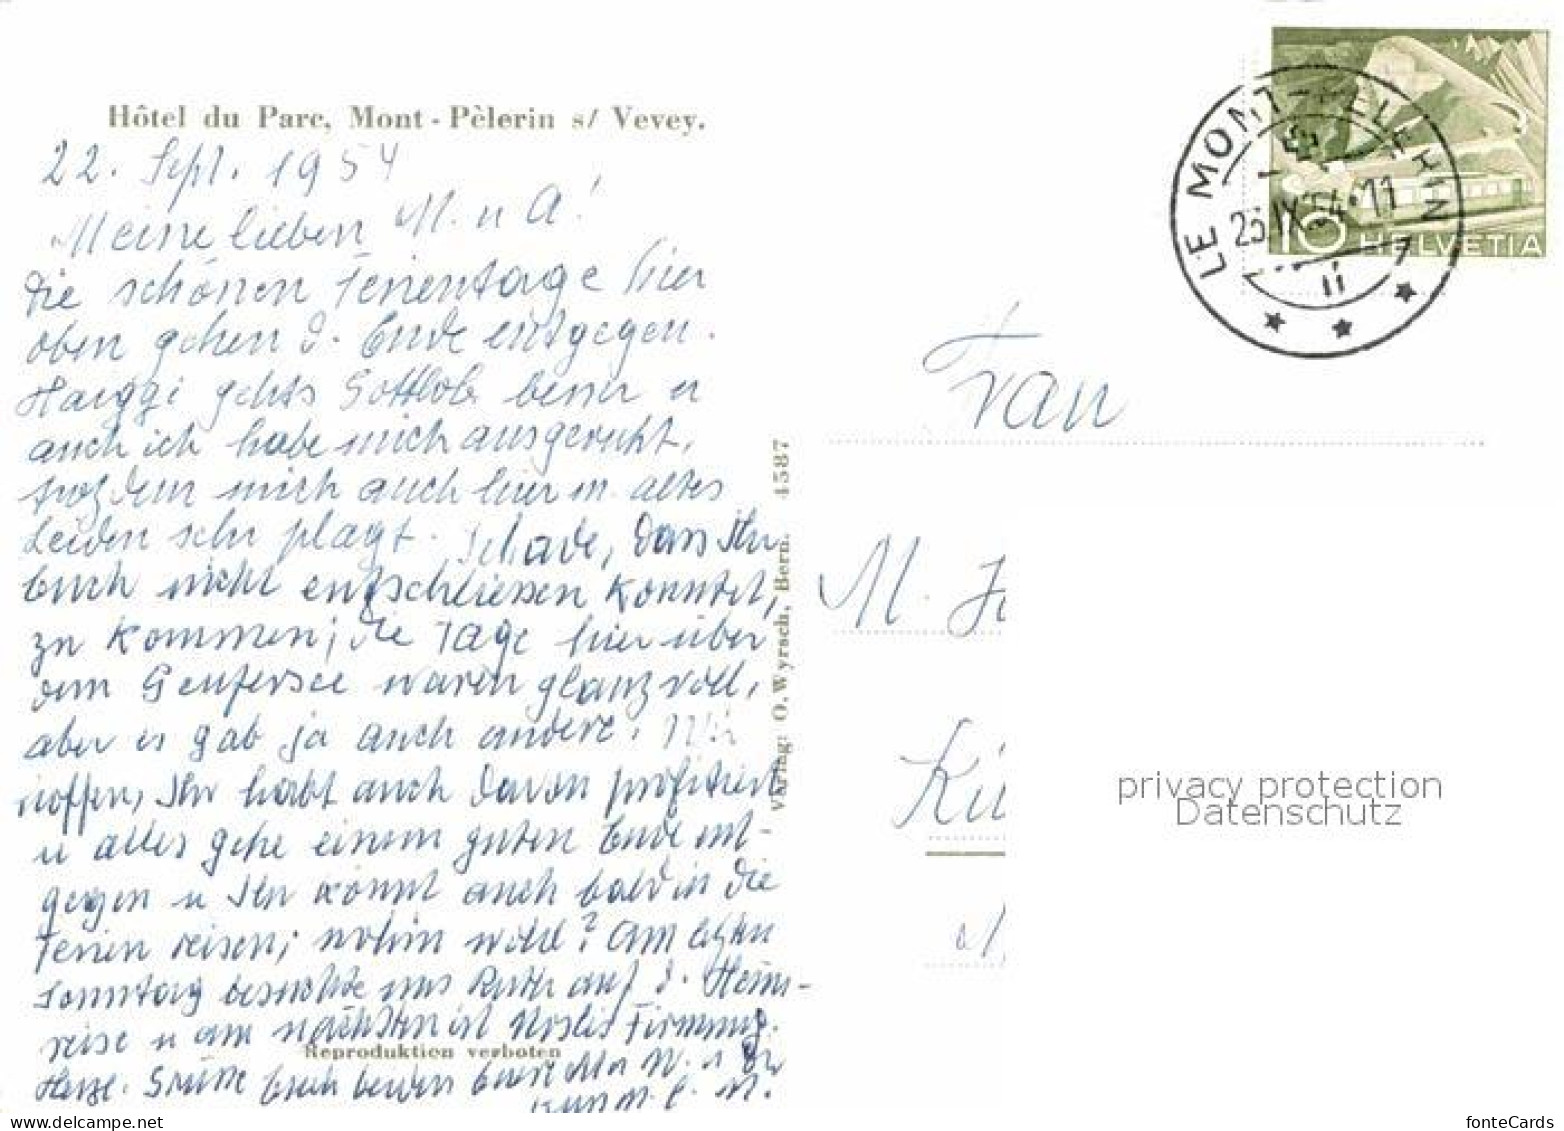 Hôtel du Parc, Mont-Pèlerin s/ Vevey.
22. Sept. 1954
Meine lieben M. u A!
Die schönen Ferientage hier
oben gehen d. Ende entgegen.
Hanggi gehts Gottlob besser u
auch ich habe mich ausgeruht,
trotzdem mich auch hier m. altes
Leiden sehr plagt. Schade, dass Ihr
Euch nicht entschliessen konntet,
zu kommen; die Tage hier über
dem Genfersee waren glanzvoll,
aber es gab ja auch andere. Wir
hoffen, Ihr habt auch davon profitiert
u alles gehe einem guten Ende ent-
gegen u Ihr könnt auch bald in die
Ferien reisen; wohin wohl? Am letzten
Sonntag besuchte uns Ruth auf d. Heim-
reise u am nächsten ist Firmung.
Herzl. Grüsse Euch beiden Eure
Reproduktion verboten
Verlag: O. Wyrsch, Bern. 4587
LE MONT-PELERIN
23.IX.54.11
10 HELVETIA
Frau
M.
privacy protection
Datenschutz
fonteCards